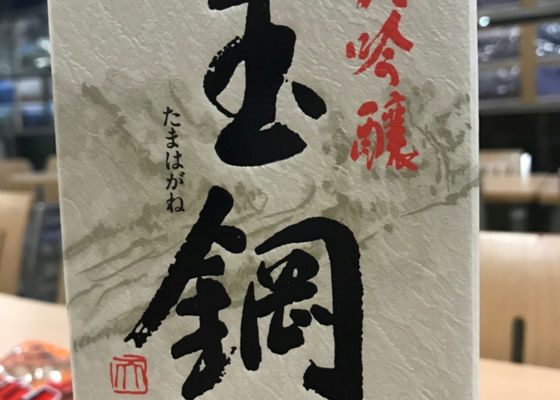 大吟醸
玉鋼
たまはがね